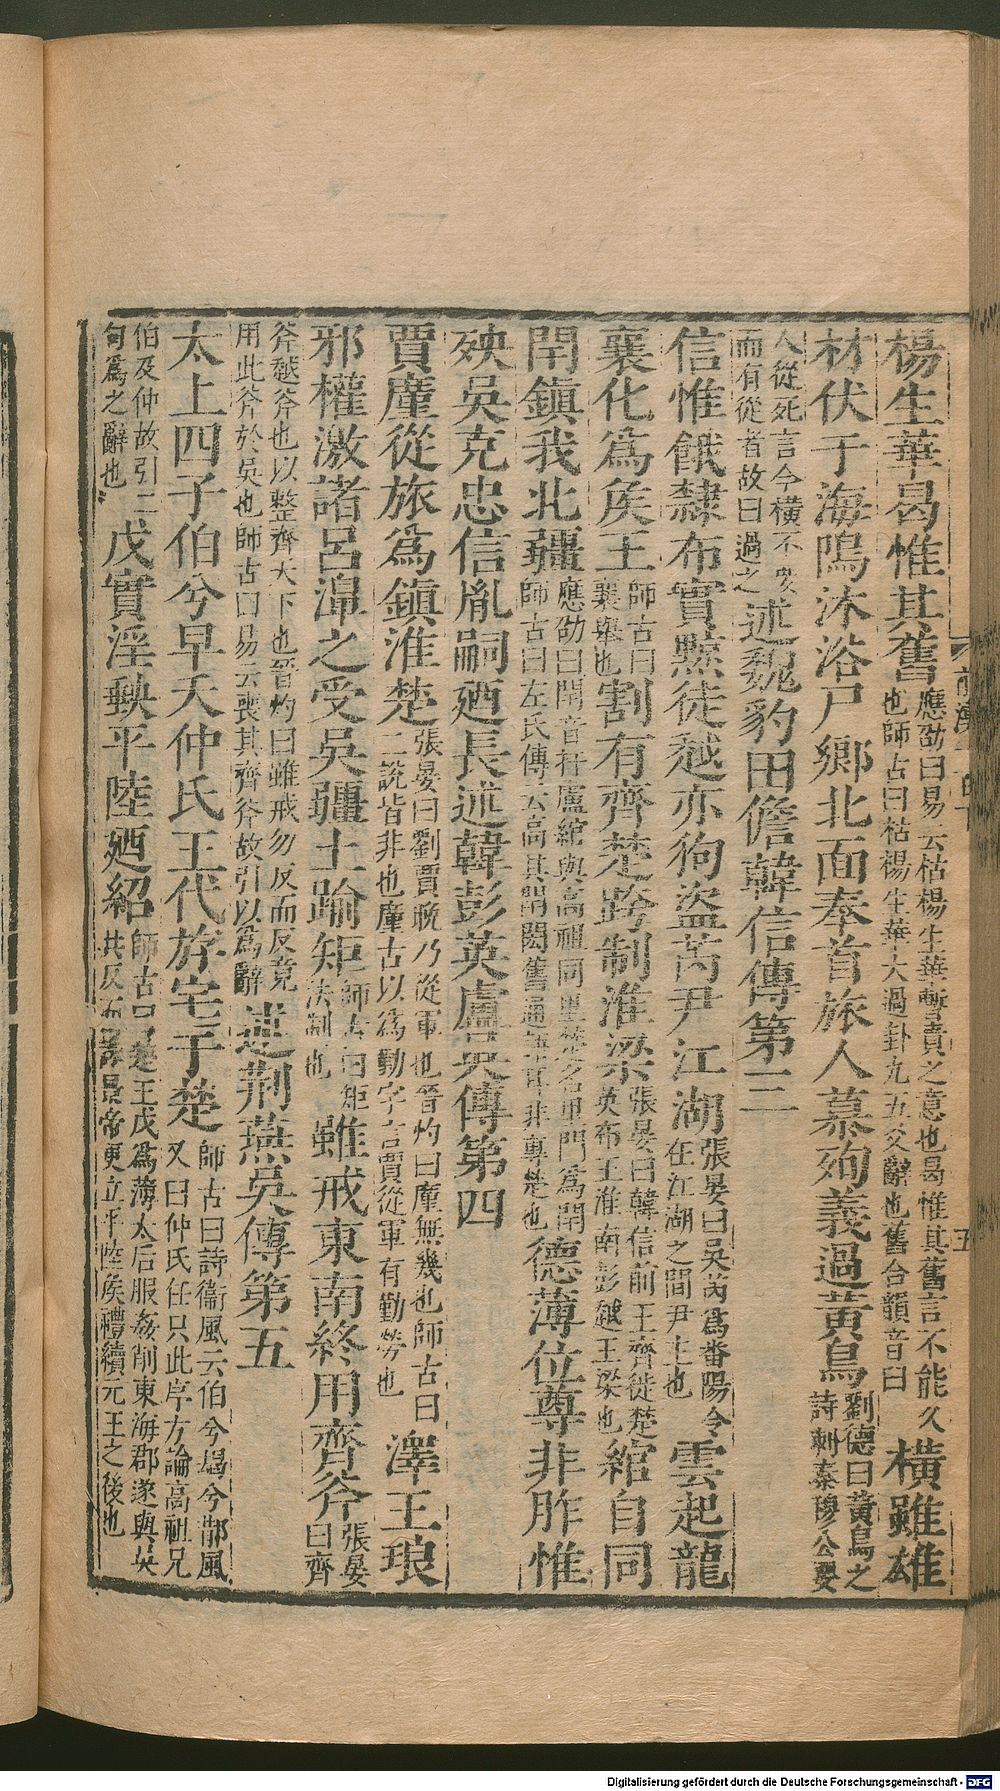 楊生華曷惟其舊應劭曰易云枯楊生華暫貴之意也曷惟其舊言不能久也師古曰枯楊生華大過卦九五爻辭也舊合韻音臼橫雖雄
材伏于海隝沐浴尸鄉北面奉首旅人慕殉義過黃鳥劉德曰黃鳥之詩刺秦穆公要
人從死言今橫不要而有從者故曰過之述魏豹田儋韓信傳第三
信惟餓隸布實黥徒越亦狗盜芮尹江湖張晏曰吳芮為番陽令在江湖之間尹主也雲起龍
襄化為矦王師古曰襄舉也割有齊楚跨制淮梁張晏曰韓信前王齊徙楚英布王淮南彭越王梁也綰自同
閈鎮我北疆應劭曰閈音扞盧綰與高祖同里楚名里門為閈師古曰左氏傳云高其閈閎舊通語耳非專楚也德薄位尊非胙惟
殃吳克忠信胤嗣廼長述韓彭英盧吳傳第四
賈廑從旅為鎮淮楚張晏曰劉賈晚乃從軍也晉灼曰廑無幾也師古曰二說皆非也廑古以為勤字言賈從軍有勤勞也澤王琅
邪權激諸呂濞之受吳疆土踰矩師古曰矩法制也雖戒東南終用齊斧張晏曰齊
斧越斧也以整齊天下也晉灼曰雖戒勿反而反竟用此斧於吳也師古曰易云喪其齊斧故引以為辭述荊燕吳傳第五
太上四子伯兮早夭仲氏王代斿宅于楚師古曰詩衞風云伯兮朅兮邶風又曰仲氏任只此序方論高祖兄
伯及仲故引二句為之辭也戊實淫𡙇平陸廼紹師古曰楚王戊為薄太后服姦削東海郡遂與吳共反而誅景帝更立平陸矦禮續元王之後也
五
Digitalisierung gefördert durch die Deutsche Forschungsgemeinschaft - DFG